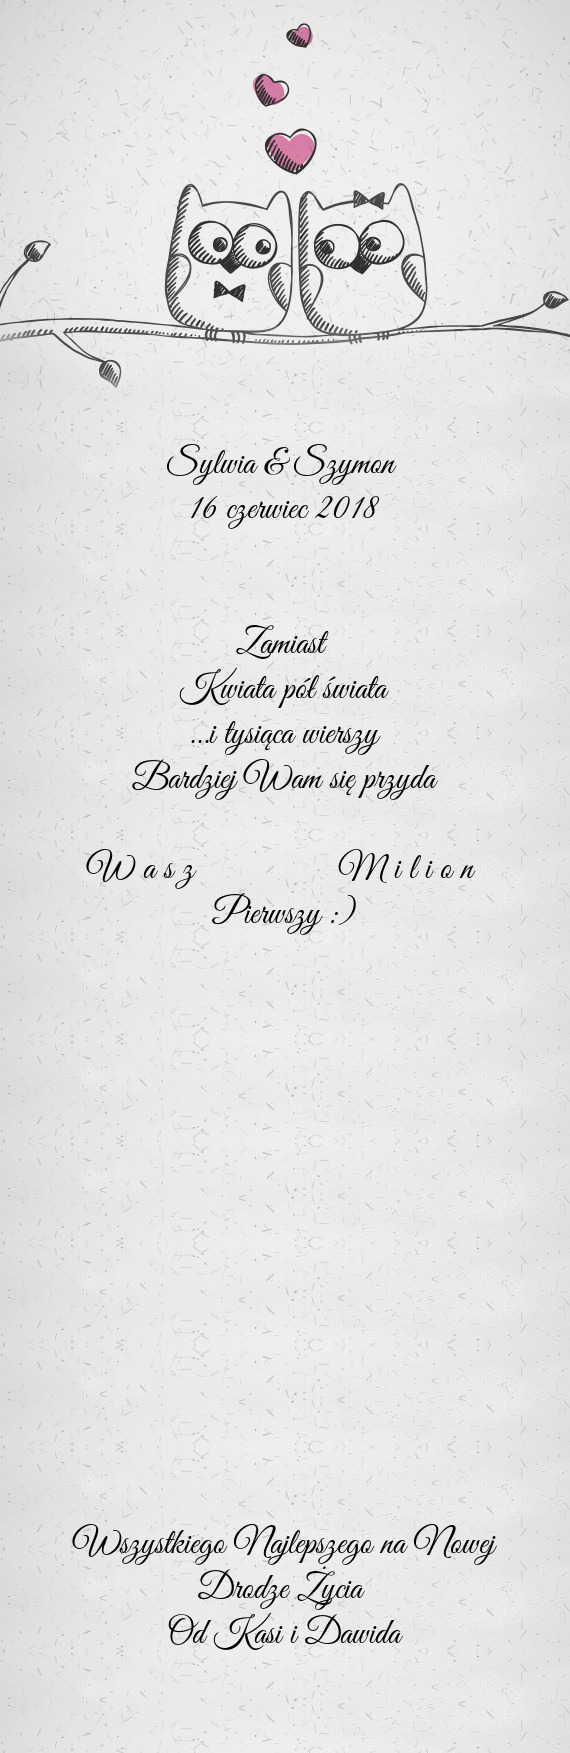 Sylwia & Szymon
16 czerwiec 2018
Zamiast
Kwiata pół świata
...i tysiąca wierszy
Bardziej Wam się przyda
Wasz Milion
Pierwszy :)
Wszystkiego Najlepszego na Nowej
Drodze Życia
Od Kasi i Dawida